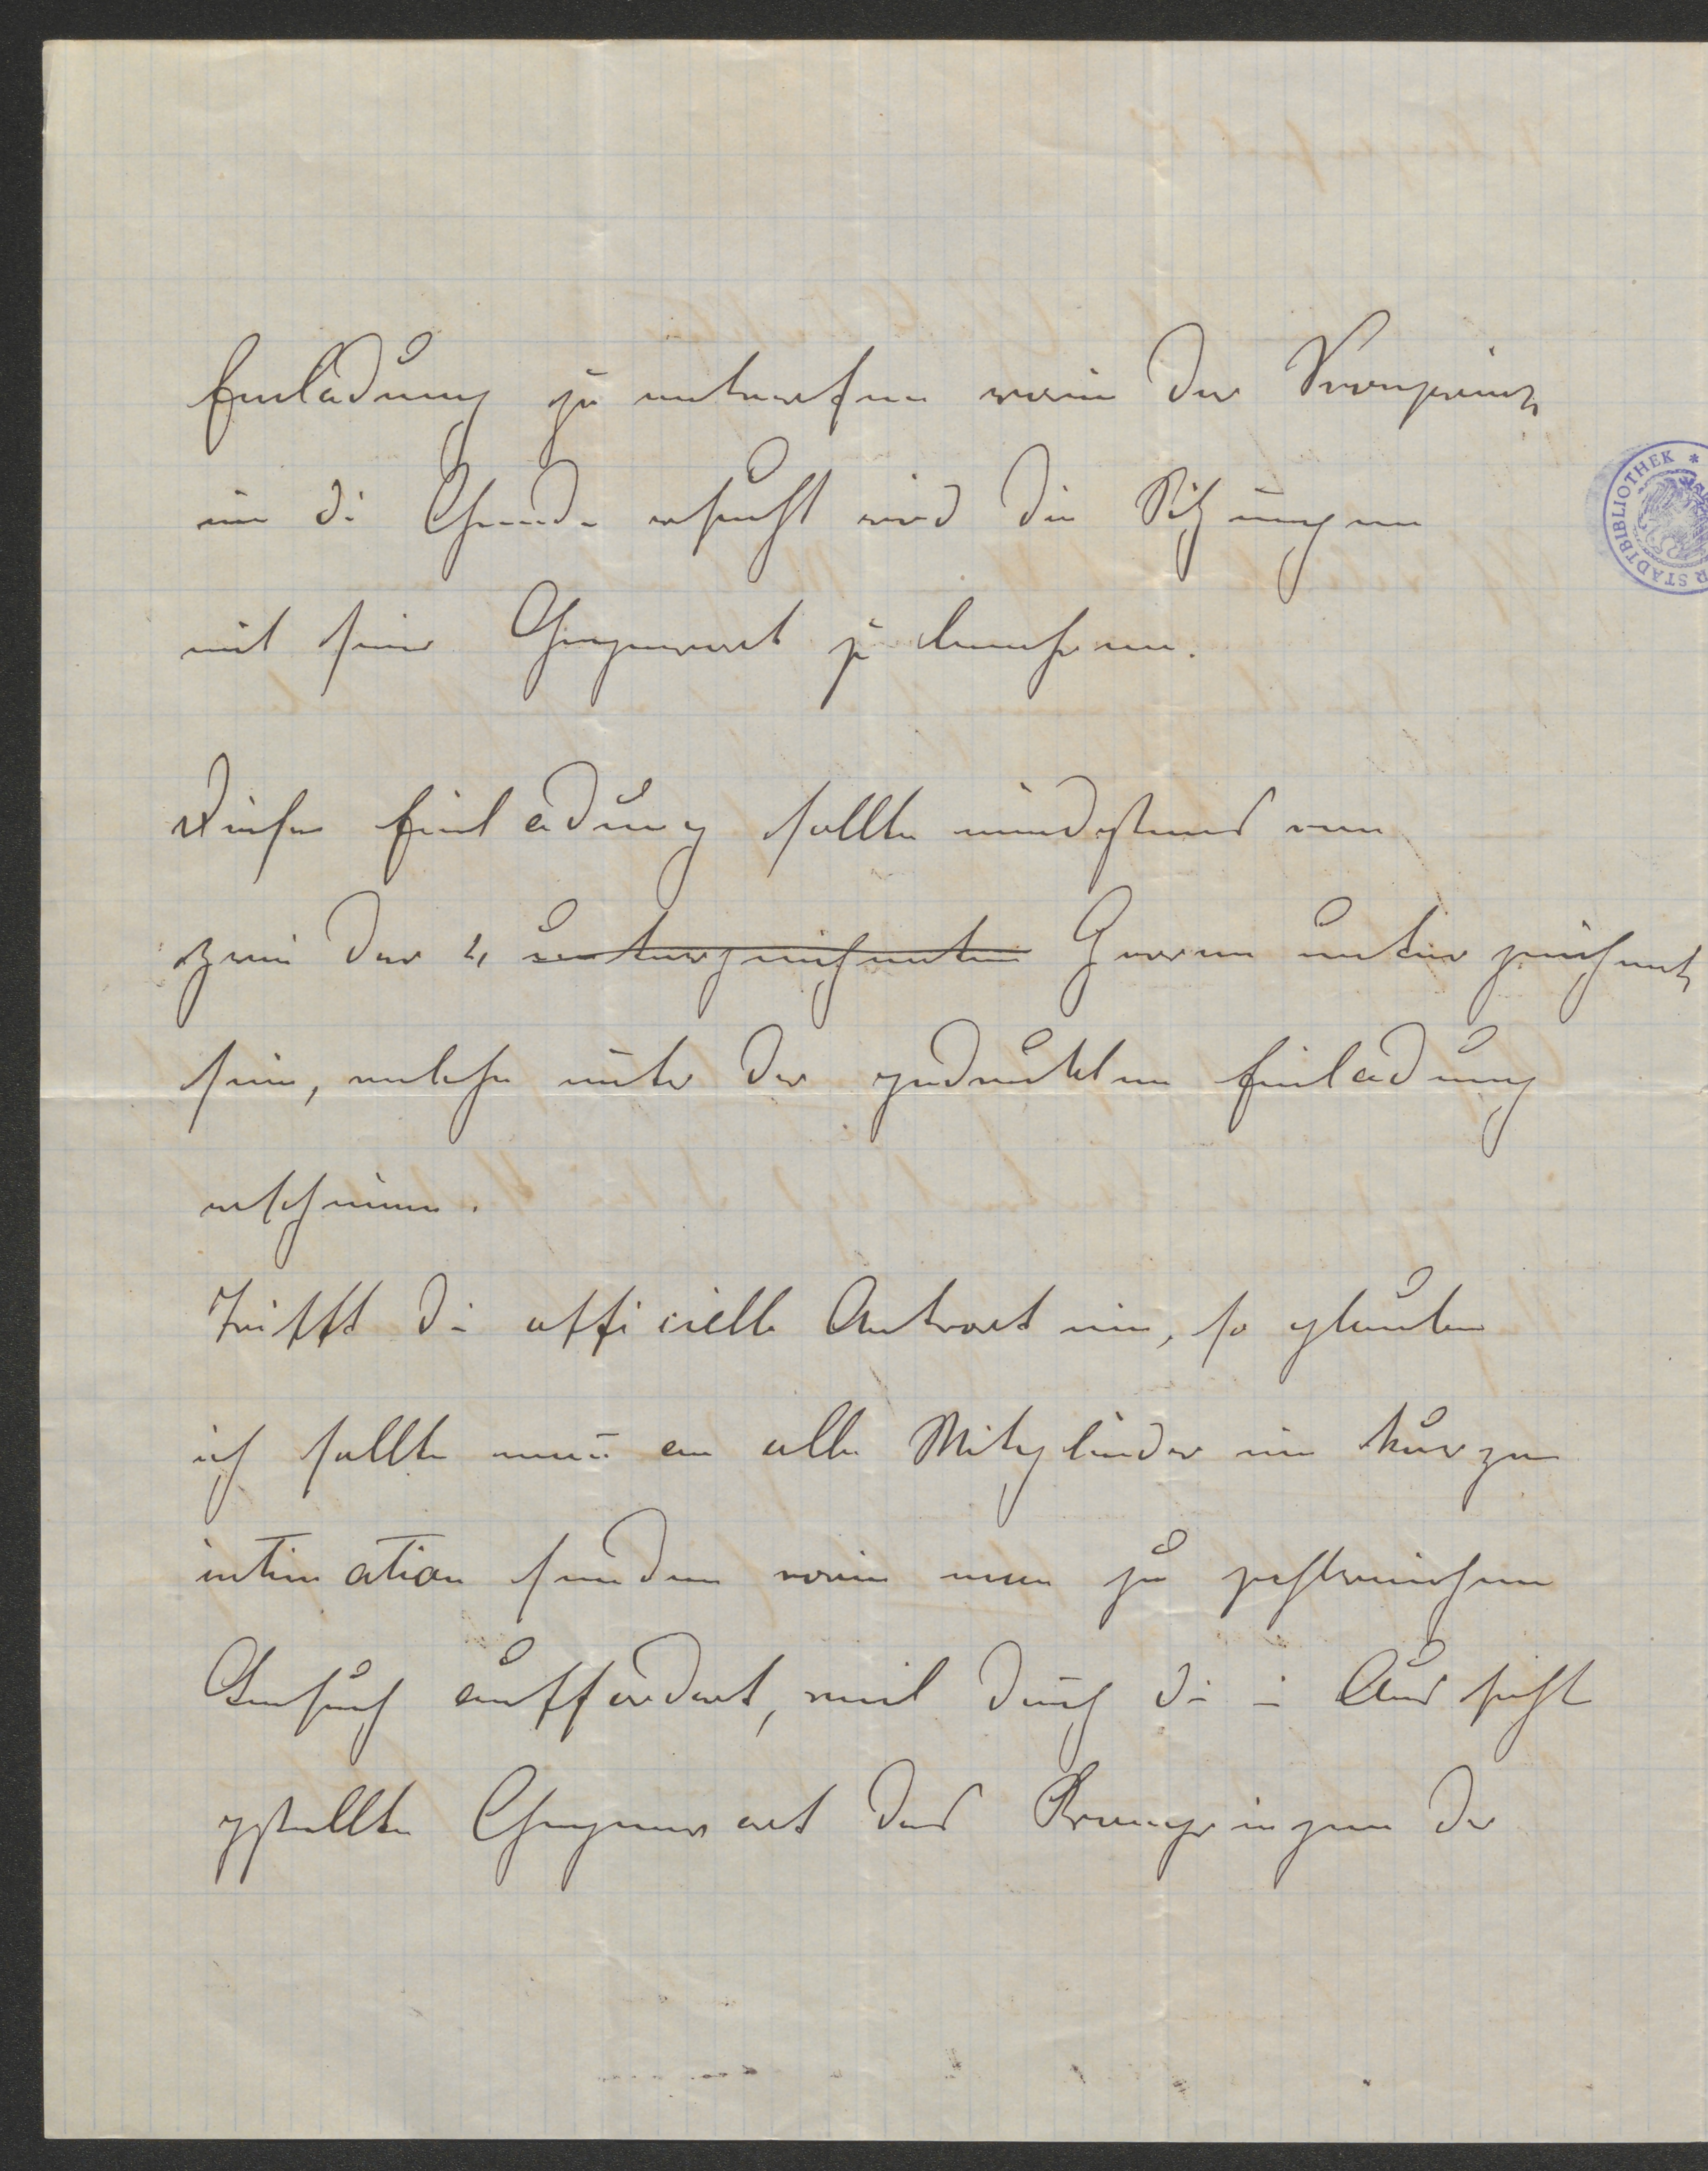 Einladung zu entwerfen worin der Kronprinz
um die Gnade ersucht wird die Sitzungen
mit seiner Gegenwart zu beehren.
Diese Einladung sollte mindestens von
zwei der 4 unterzeichneten Herren unterzeichnet
sein, welche unter der gedruckten Einladung
erscheinen.
Trifft die officielle Antwort ein, so glaube
ich sollte man an alle Mitglieder eine kurze
intimation senden worin man zu zahlreichem
Besuch auffordert, weil durch die in Aussicht
gestellte Gegenwart des Kronprinzen der
STADTBIBLIOTHEK *